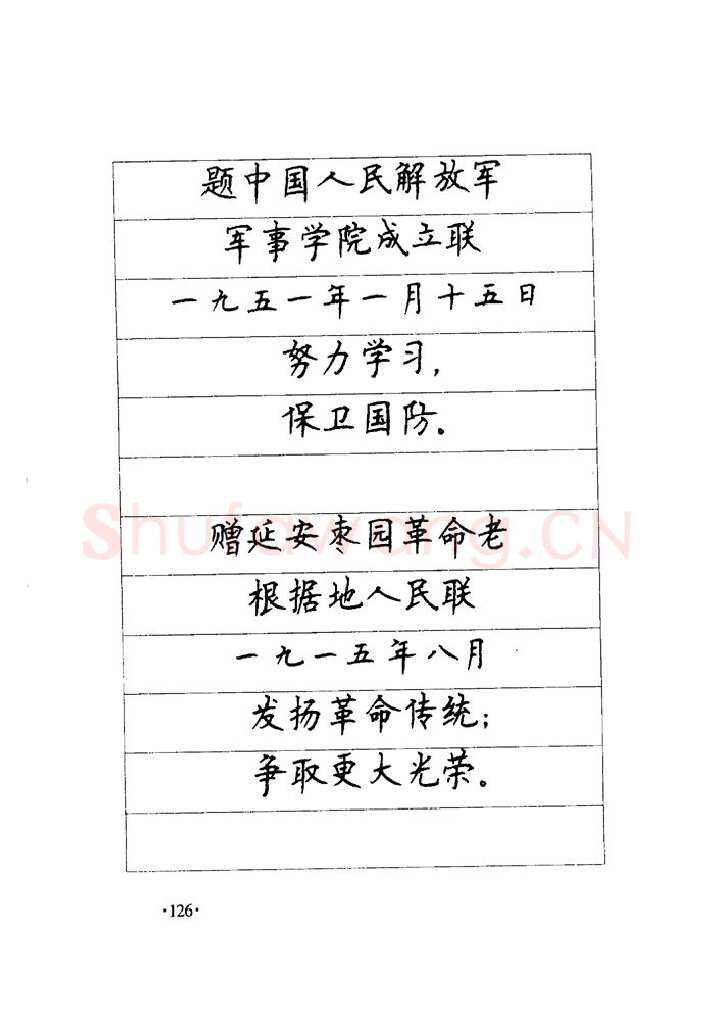 题中国人民解放军
军事学院成立联
一九五一年一月十五日
努力学习，
保卫国防。
Shufawang.CN
赠延安枣园革命老
根据地人民联
一九一五年八月
发扬革命传统；
争取更大光荣。
·126·